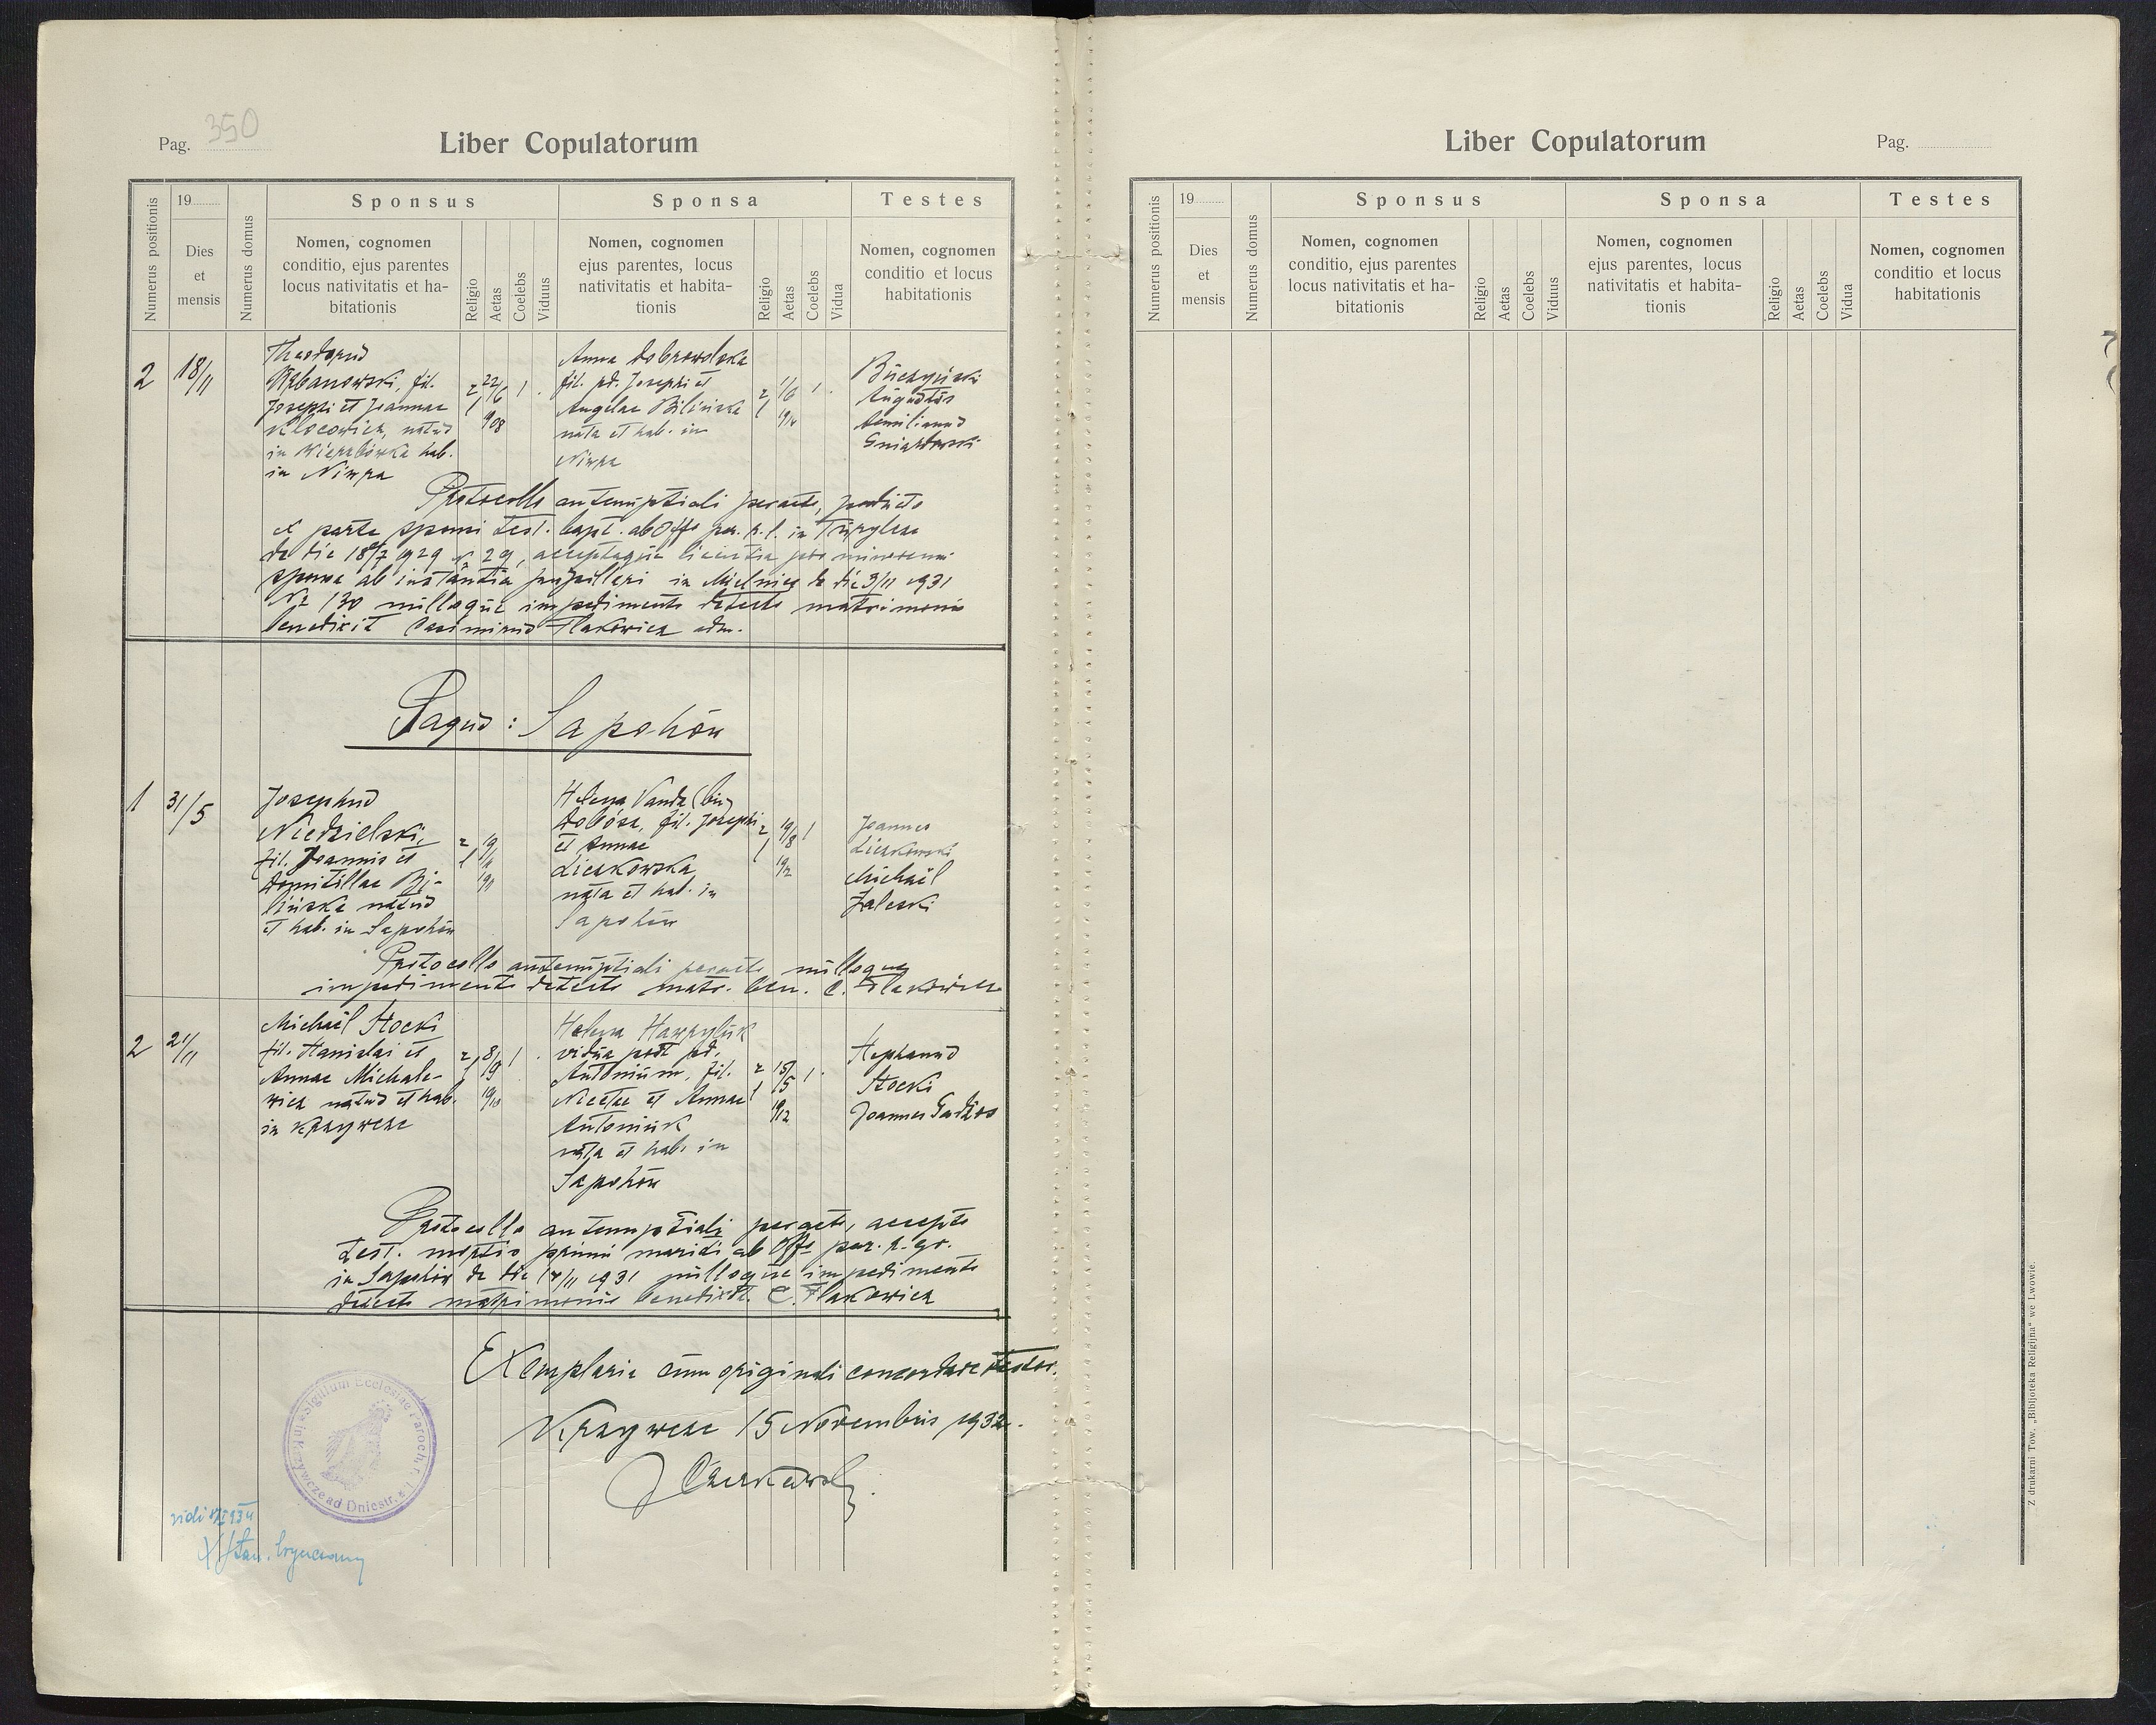 Pag. 350
Liber Copulatorum
Numerus positionis
19
Dies
et
mensis
Numerus domus
Sponsus
Nomen, cognomen
conditio, ejus parentes
locus nativitatis et ha-
bitationis
Religio
Aetas
Coelebs
Viduus
Sponsa
Nomen, cognomen
ejus parentes, locus
nativitatis et habita-
tionis
Religio
Aetas
Coelebs
Vidua
Testes
Nomen, cognomen
conditio et locus
habitationis
2
18/11
Theodorus
Urbanowski, fil.
Josephi et Joannae
Klocowicz, natus
in Wierzbówka hab.
in Niwra
r. l.
22/6 908
1
Anna Dobrowolska
fil. pd. Josephi et
Angelae Bilińska
nata et hab. in
Niwra
r. l.
1/6 914
1
Buczyński
Augustus
Aemilianus
Gniazdowski
Protocollo antenuptiali peracto, producto
ex parte sponsi test. bapt. ab Offo par. r. l. in Turylcze
de die 18/7 1929 N 29, acceptaque licentia pro minorenni
sponsa ab instantia pupillari in Mielnica de die 3/11 1931
Nr 130 nulloque impedimento detecto matrimonio
benedixit Casimirus Flakowicz adm.
Pagus: Sapohów
1
31/5
Josephus
Niedzielski,
fil. Joannis et
Domitillae Bi-
lińska natus
et hab. in Sapohów
r. l.
19/11 911
Helena Vanda (bin)
Dobósz, fil. Josephi
et Annae
Liczkowska
nata et hab. in
Sapohów
r. l.
19/8 912
1
Joannes
Liczkowski
Michaël
Zaleski
Protocollo antenuptiali peracto nulloque
impedimento detecto matr. ben. C. Flakowicz
2
21/11
Michaël Stocki
fil. Stanislai et
Annae Michale-
wicz natus et hab.
in Krzywcze
r. l.
8/9 1910
1
Helena Hawryluk
vidua post pd.
Antonium, fil.
Nicetae et Annae
Antoniuk
nata et hab. in
Sapohów
r. l.
15/5 1912
1
Stephanus
Stocki
Joannes
Protocollo antenuptiali peracto, accepto
test. mortis primi mariti ab Offo par. r. gr.
in Sapohów de die 14/11 1931 nulloque impedimento
detecto matrimonio benedixit C. Flakowicz
Exemplaria cum originali concordare testor.
Krzywcze 15 Novembris 1932.
Sigillum Ecclesiae Paroch. r. l. in Krzywcze ad Dniestr.
vidi
X Stan.
Liber Copulatorum
Pag.
Numerus positionis
19
Dies
et
mensis
Numerus domus
Sponsus
Nomen, cognomen
conditio, ejus parentes
locus nativitatis et ha-
bitationis
Religio
Aetas
Coelebs
Viduus
Sponsa
Nomen, cognomen
ejus parentes, locus
nativitatis et habita-
tionis
Religio
Aetas
Coelebs
Vidua
Testes
Nomen, cognomen
conditio et locus
habitationis
Z drukarni Tow. „Bibljoteka Religijna" we Lwowie.